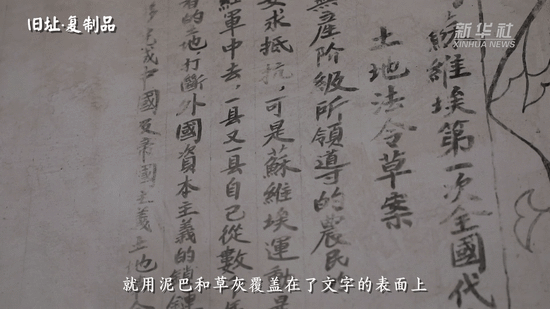 旧址·复制品
新华社
XINHUA NEWS
蘇維埃第一次全國代
土地法令草案
無產阶級所領导的農民
求抵抗,可是蘇維埃運動
紅軍中去,一县又一县自己從數
者的地打斷外國資本主義的鎖鏈
國及帝國主義
就用泥巴和草灰覆盖在了文字的表面上